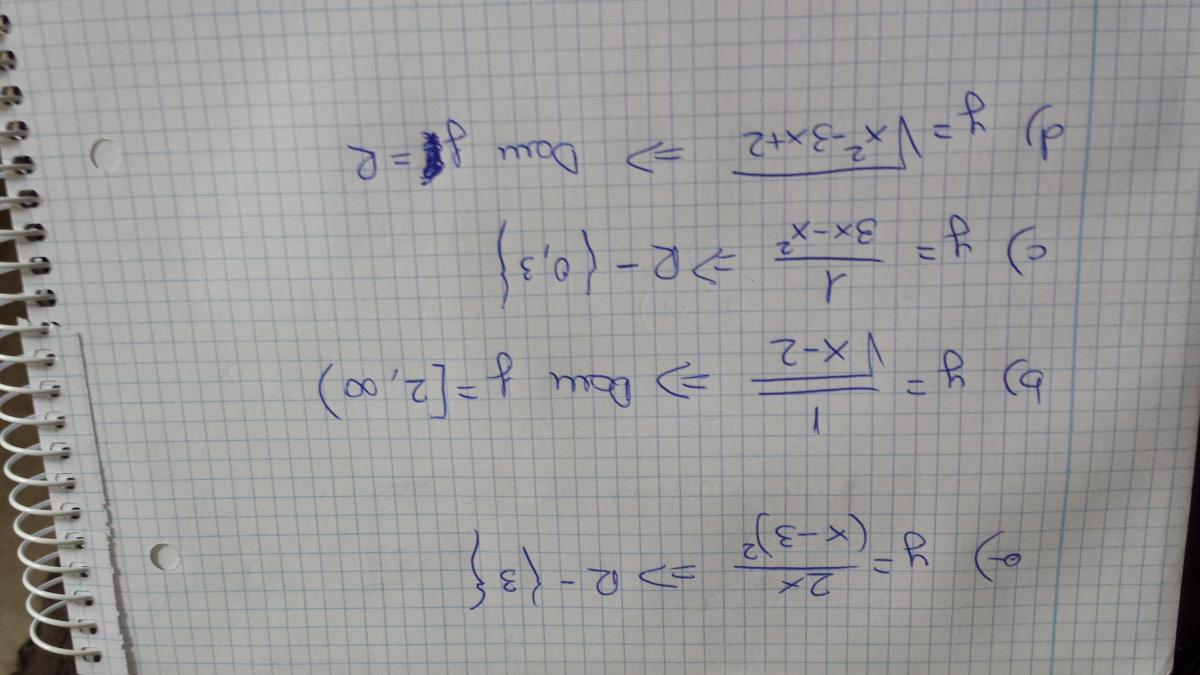 a) y = 2x/(x-3)² => R - {3}
b) y = 1/√(x-2) => Dom y = [2, ∞)
c) y = 1/(3x-x²) => R - {0,3}
d) y = √(x²-3x+2) => Dom y = R